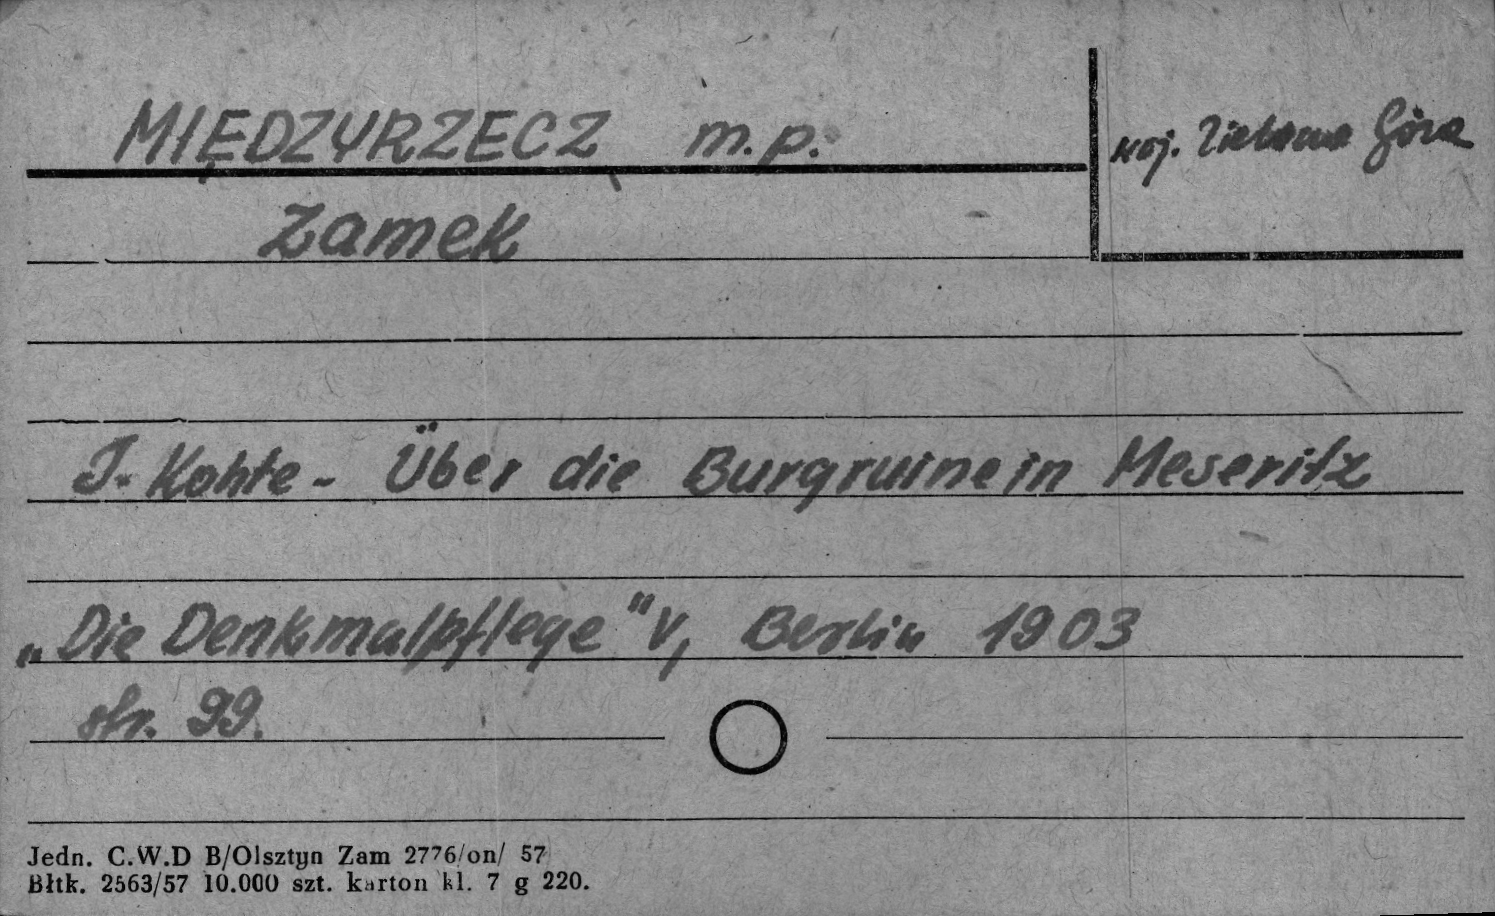 MIĘDZYRZECZ m.p.
woj. Zielona Góra
Zamek
J. Kohte - Über die Burgruine in Meseritz
„Die Denkmalpflege" V, Berlin 1903
str. 99.
Jedn. C.W.D B/Olsztyn Zam 2776/on/ 57
Błtk. 2563/57 10.000 szt. karton kl. 7 g 220.